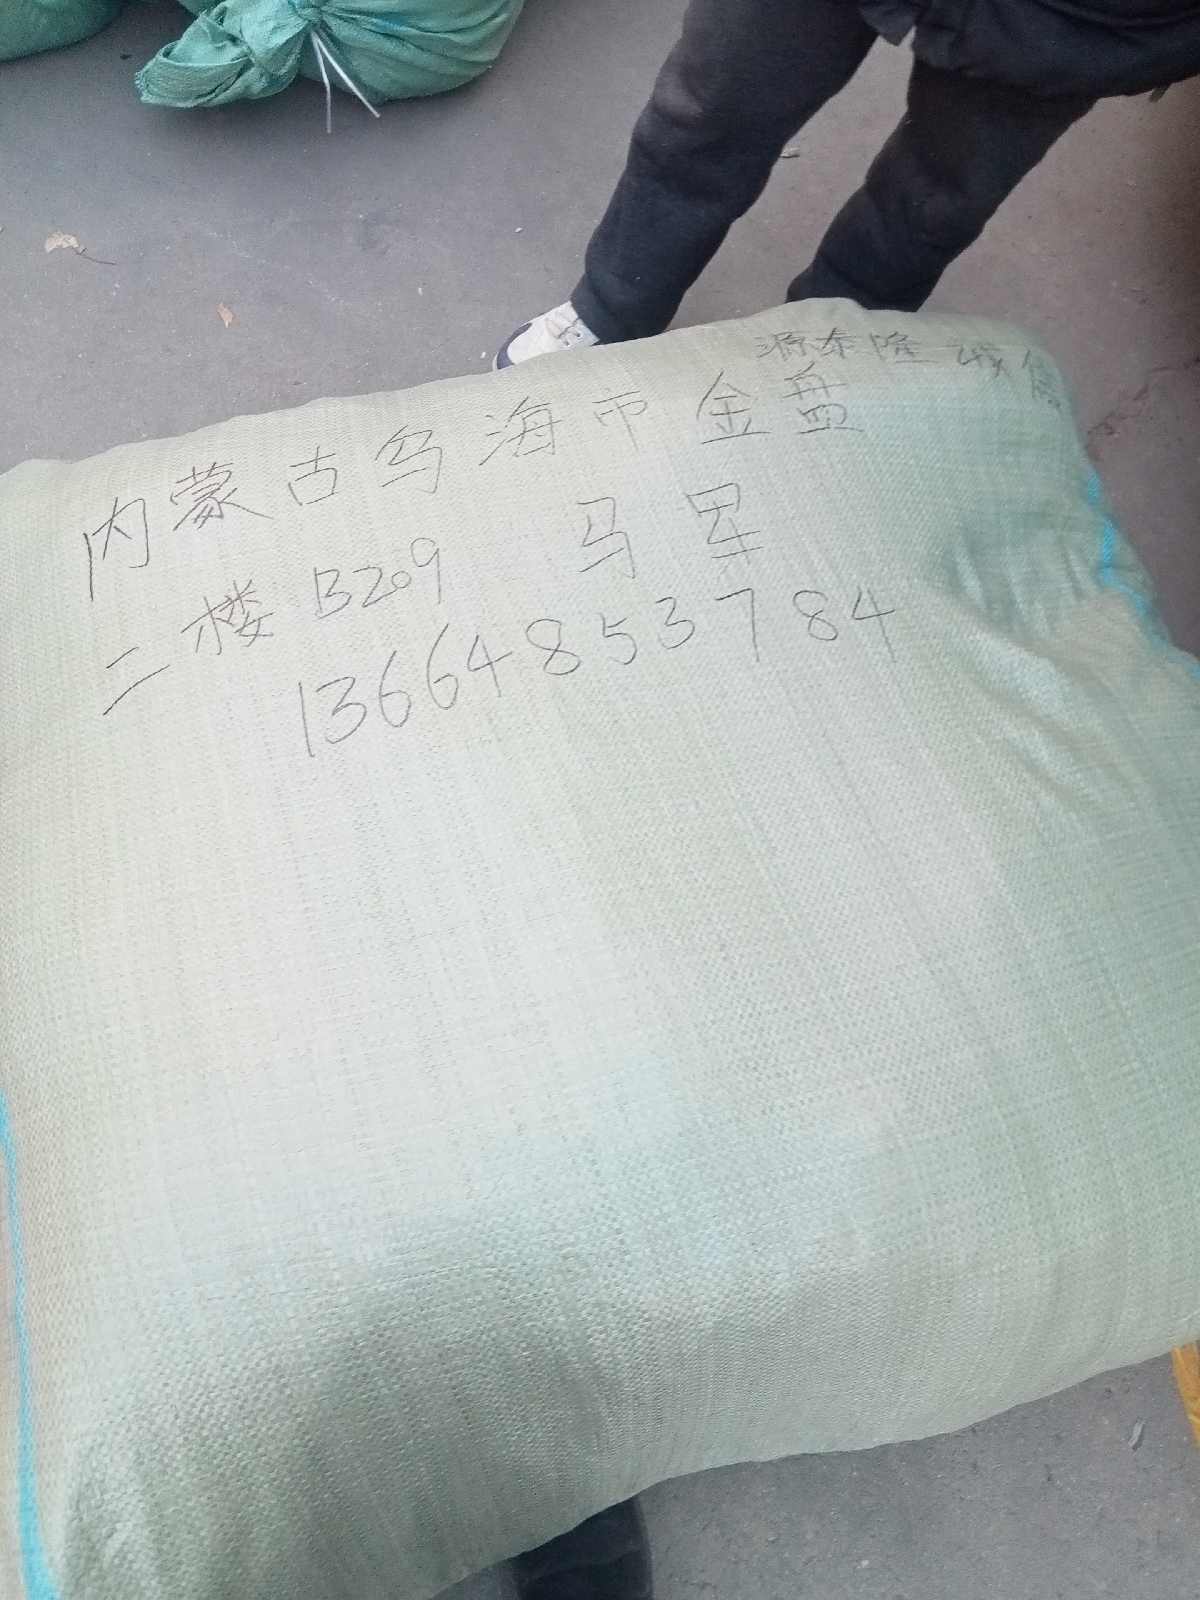 源泰隆 诚信
内蒙古乌海市金盘
二楼 B209 马军
13664853784